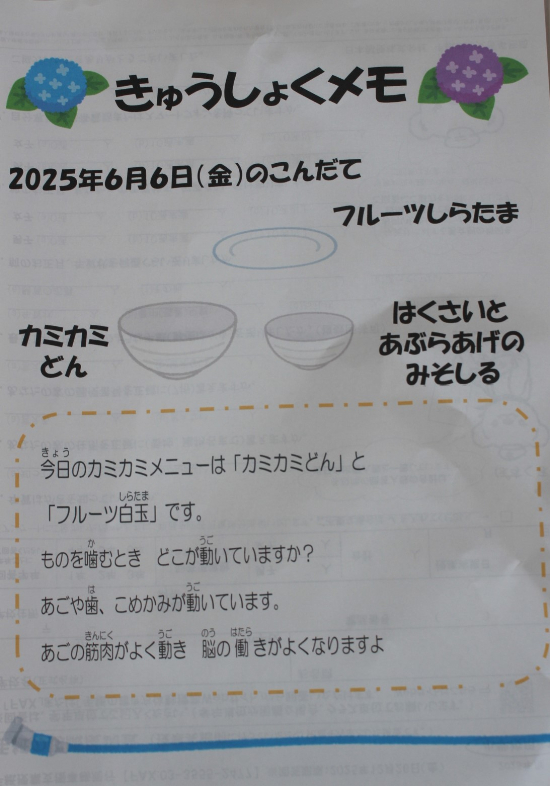 きゅうしょくメモ
2025年6月6日(金)のこんだて
フルーツしらたま
カミカミ
どん
はくさいと
あぶらあげの
みそしる
きょう
今日のカミカミメニューは「カミカミどん」と
しらたま
「フルーツ白玉」です。
か うご
ものを噛むとき どこが動いていますか?
は うご
あごや歯、こめかみが動いています。
きんにく うご のう はたら
あごの筋肉がよく動き 脳の働きがよくなりますよ